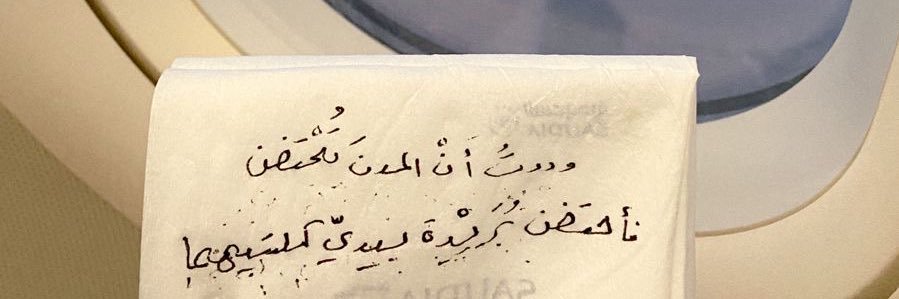 وددتُ أنْ المدنَ تُحْتضن
فأحتضن بُرَيْدةَ بيديّ كلتيهما
السعودية
SAUDIA
SAUDIA